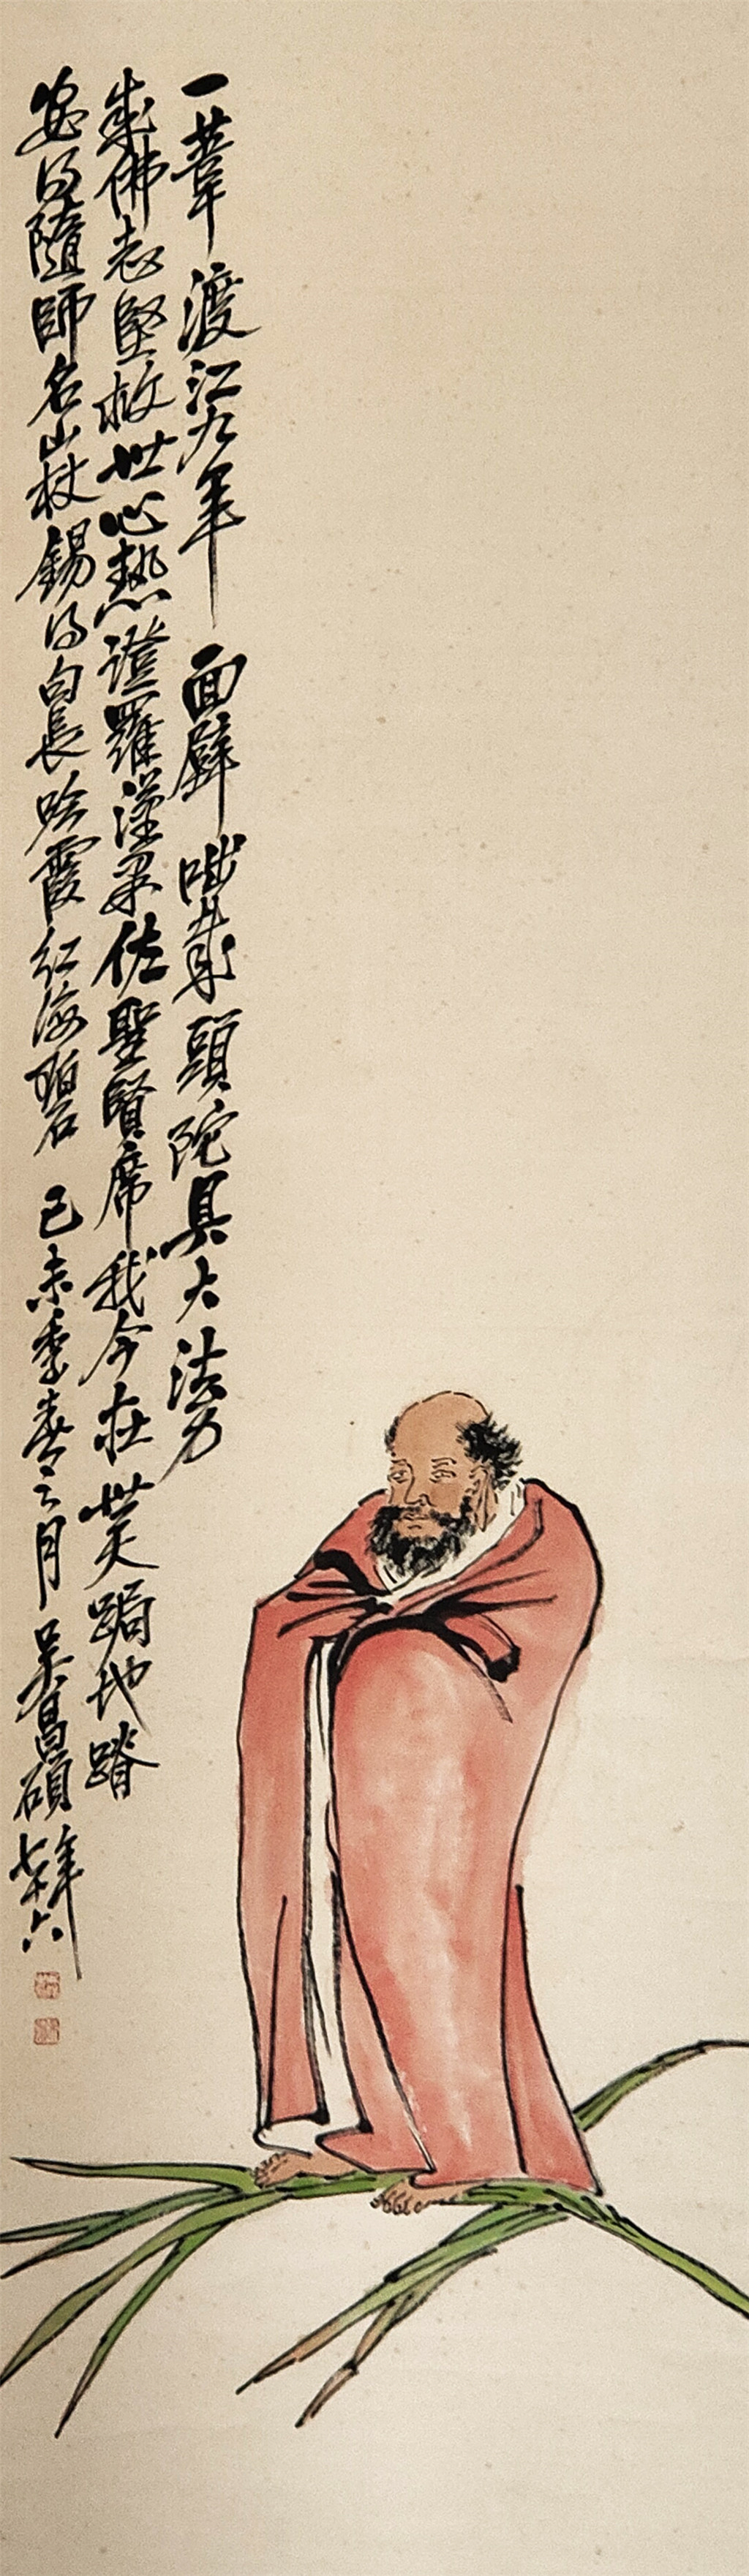 一葦渡江九年面壁咄哉頭陀具大法力
成佛志堅救世心熱證羅漢果佐聖賢席我今在世天跼地蹐
安得隨師名山杖錫得句長吟霞紅海碧 己未季春之月吳昌碩年七十六